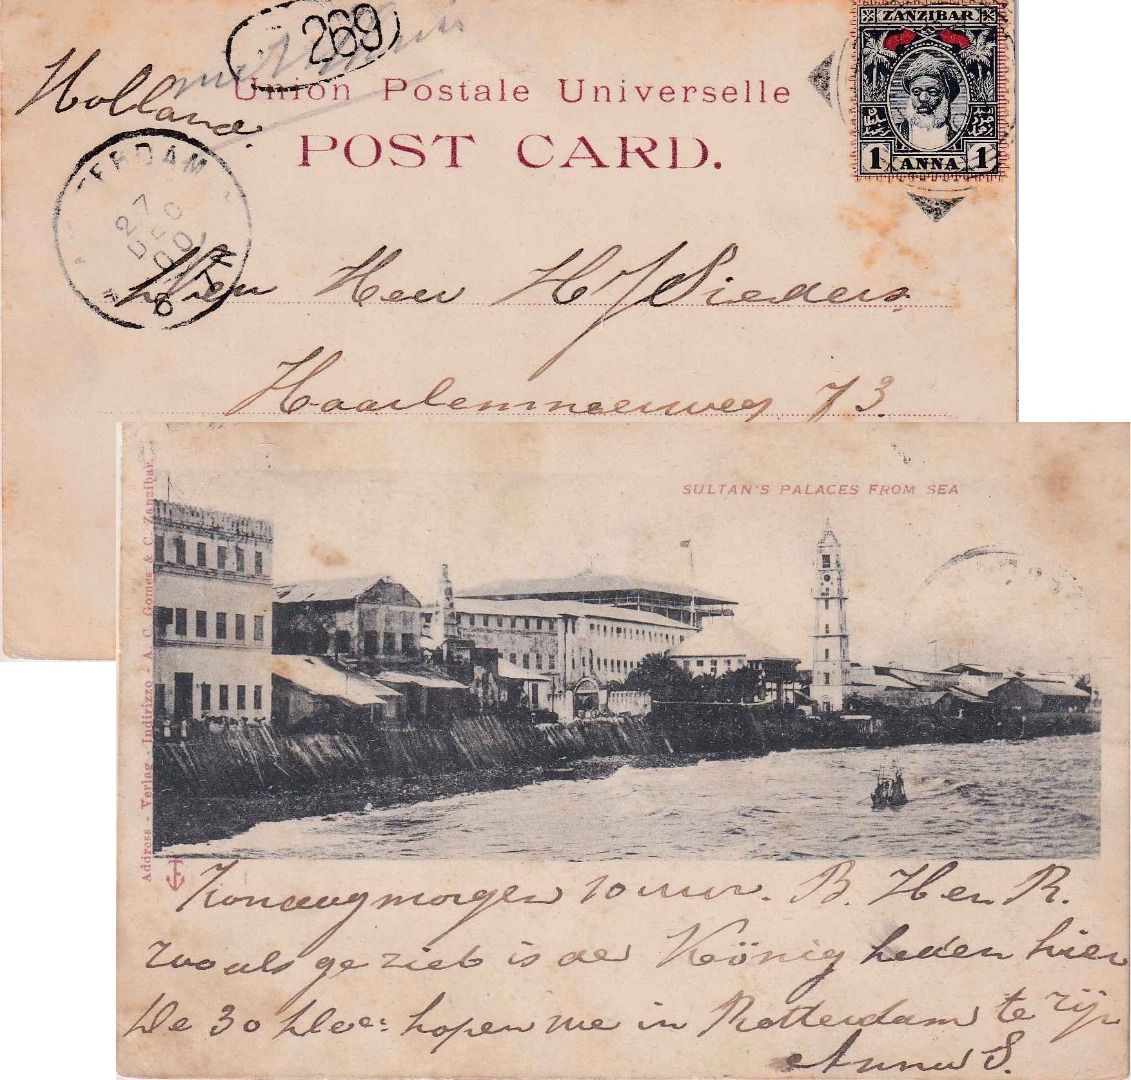 269
Holland.
Union Postale Universelle
POST CARD.
ZANZIBAR
1 ANNA 1
ERDAM
27
DEC
00
Heer H J Sieders
Haarlemmerweg 73.
SULTAN'S PALACES FROM SEA
Address - Verlag - Indirizzo - A. C. Gomes & C. Zanzibar.
Zondagmorgen 10 uur. B. H en R.
zooals ge ziet is de König heden hier
De 30 Dec: hopen we in Rotterdam te zijn
Anna S.